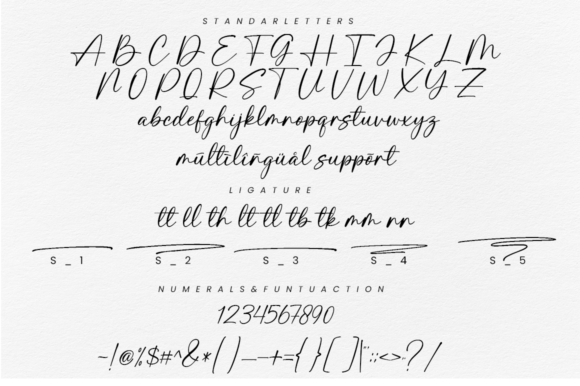 STANDARLETTERS
ABCDEFGHIJKLM
NOPQRSTUVWXYZ
abcdefghijklmnopqrstuvwxyz
múltilíñgüàl suppōrt
LIGATURE
tt ll th lt tl tb tk mm nn
S_1 S_2 S_3 S_4 S_5
NUMERALS&FUNTUACTION
1234567890
~!@%$#^&*()_—-+={}[]|¨:;<>-?/